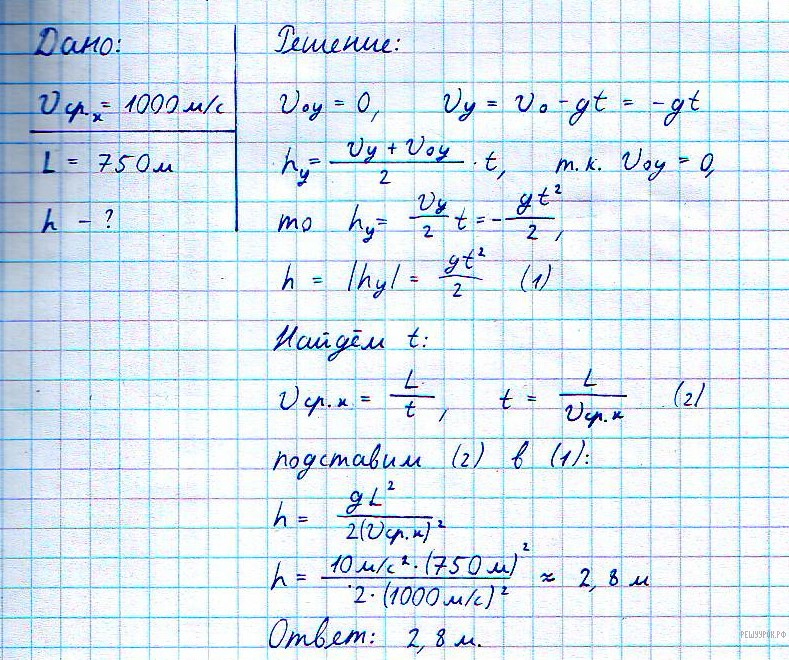 Дано:
υср.х = 1000 м/с
L = 750 м
h - ?
Решение:
υ₀y = 0, υy = υ₀ - gt = -gt
hy = (υy + υ₀y)/2 · t, т.к. υ₀y = 0,
то hy = υy/2 t = - gt²/2,
h = |hy| = gt²/2 (1)
Найдём t:
υср.х = L/t, t = L/υср.х (2)
подставим (2) в (1):
h = gL²/2(υср.х)²
h = 10 м/с² · (750 м)²/2 · (1000 м/с)² ≈ 2,8 м
Ответ: 2,8 м.
РЕШУУРОК.РФ